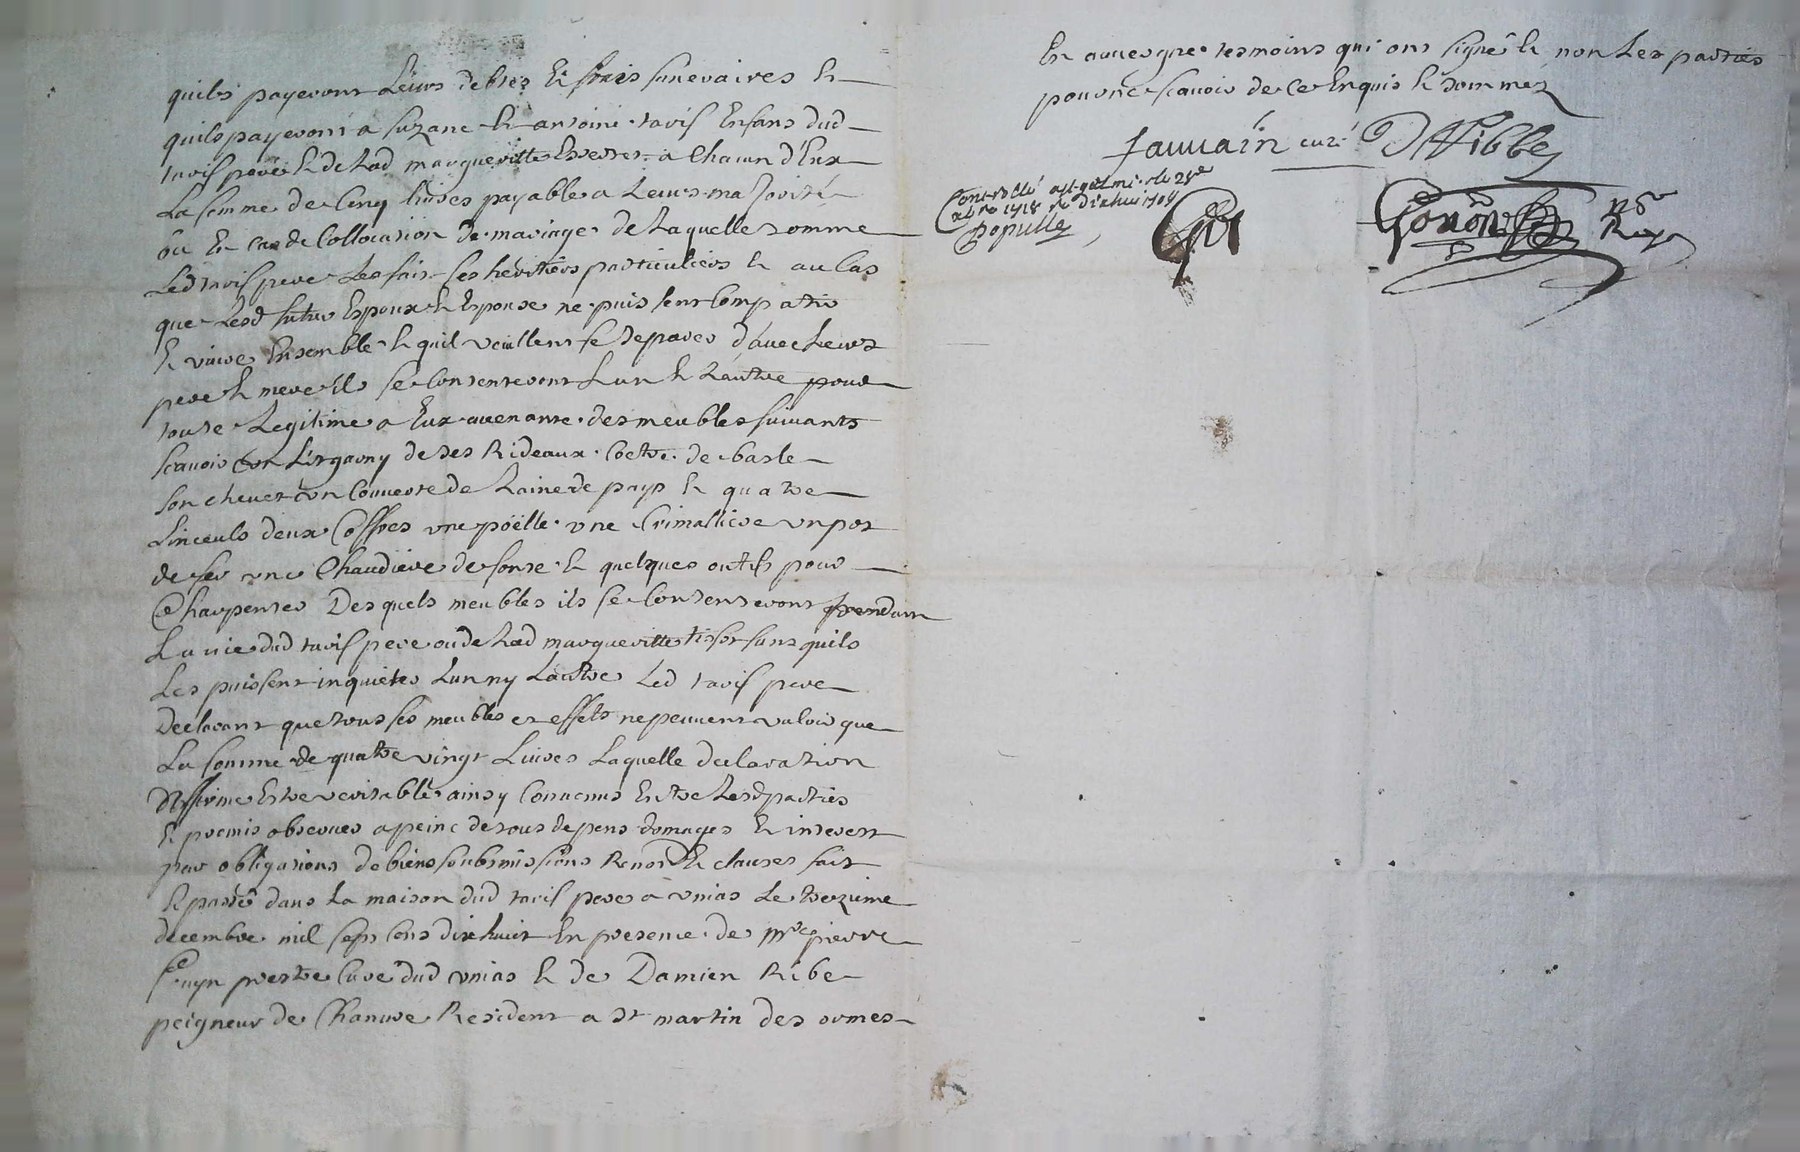 quils payeront Leurs debtes Et frais funeraires Et
quils payeront a Suzane Et antoine tavif Enfans dud
tavif pere Et de Lad margueritte a Chacun d'Eux
La somme de Cinq livres payable a Leurs majorité
ou En Cas de Collocation de mariage de Laquelle somme
Led tavif pere Les fait ses heritiers particuliers Et au Cas
que Lesd futur Espoux Et Espouse ne puissent Compatir
Et vivre Ensemble Et quil veuillent se Separer d'avec Leurs
pere Et mere ils se Contenteront Lun Et Lautre pour
toute Legitime a Eux avenante des meubles suivants
scavoir un de ses Rideaux Coetre de basle
son chevet un Couverte de Laine de pays Et quatre
Linceuls deux Coffres une poëlle une Crimalliere un pot
de fer une Chaudiere de fonte Et quelques outils pour
Charpenter Desquels meubles ils se Contenteront pendant
La vie dud tavif pere ou de Lad margueritte sans quils
Les puissent inquieter Lun ny Lautre Led tavif pere
Declarant que tous ses meubles et effets ne peuvent valoir que
La somme de quatre vingt Livres Laquelle declaration
Affirme Estre veritable ainsy Convenus Entre Lesd parties
Et promis observer a peine de tous depens domages Et interest
par obligations de biens soubmissions Renon Et clauses fait
Et passé dans La maison dud tavif pere a unias Le trezieme
decembre mil sept cens dix huict En presence de Mre pierre
prestre Curé dud unias Et de Damien Ribe
peigneur de Chanvre Resident a St martin des ormes
En auvergne tesmoins qui ont signé Et non Les parties
pour ne scavoir de Ce Enquis Et sommez
Jauuain curé D Ribbe
Controllé a St galmier le 28e
xbre 1718 Rc dix huit sols
Populle
Gonon Nre
Royal